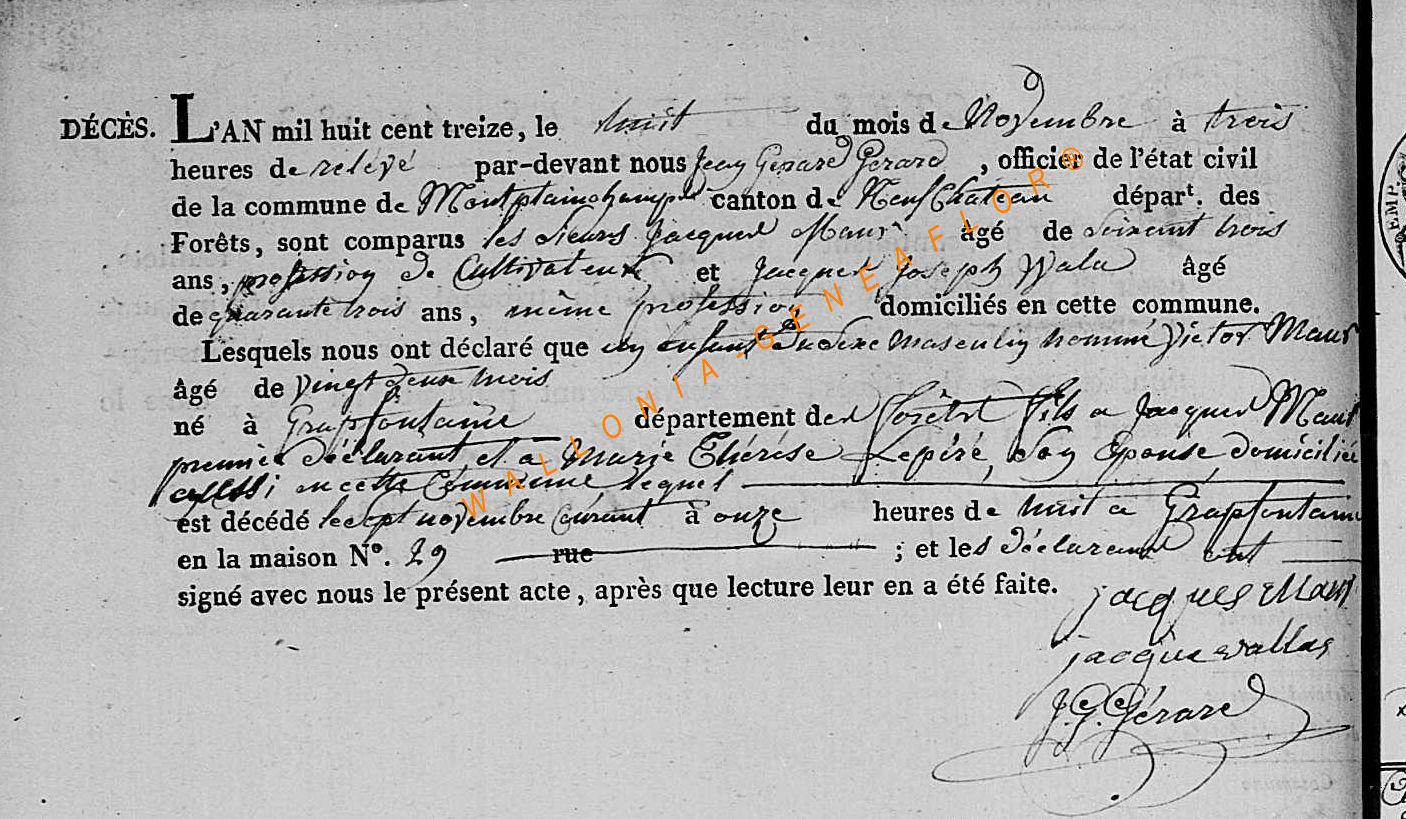 DÉCÈS. L'AN mil huit cent treize, le huit du mois de Novembre à trois
heures de relevé par-devant nous Jean Gerard Gerard, officier de l'état civil
de la commune de Montplainchamps canton de Neufchateau départ. des
Forêts, sont comparus les Sieurs Jacques Maus âgé de soixant trois
ans, profession de Cultivateur et Jacques Joseph âgé
de quarante trois ans, même profession domiciliés en cette commune.
Lesquels nous ont déclaré que un enfant du sexe masculin nommé Victor Maus
âgé de vingt deux mois
né à Grapfontaine département des forêts fils a Jacques Maus
premier déclarant et a Marie Thérése Lepiré, son Epouse domiciliée
aussi en cette Commune lequel
est décédé le sept novembre courant à onze heures de nuit a Grapfontaine
en la maison N°. 29 rue ; et les déclarans ont
signé avec nous le présent acte, après que lecture leur en a été faite.
jacques Maus
jacque wallas
J. G. Gérard
WALLONIA-GENEAFLOR®
EMP.